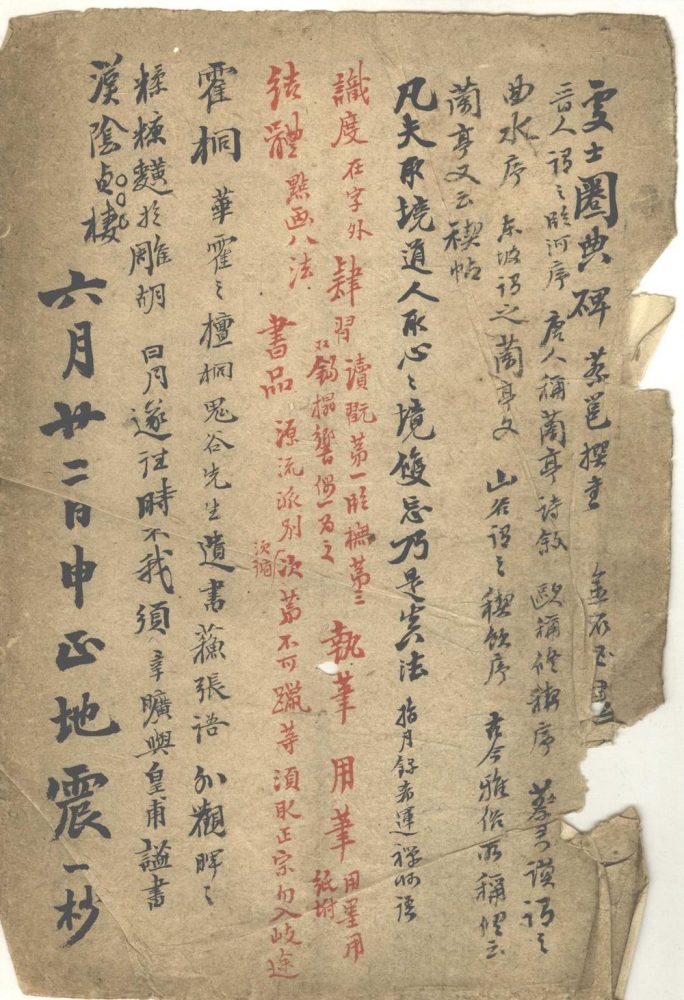 處士圈典碑 蔡邕撰書 金石
晉人謂之臨河序 唐人稱蘭亭詩敘 歐稱修禊序 蔡君謨謂之
曲水序 東坡謂之蘭亭文 山谷謂之禊飲序 古今雅俗所稱俱云
蘭亭又云禊帖
凡夫取境道人取心心境雙忘乃是真法 指月錄希運禪師語
識度 在字外 肆習 讀翫第一 臨橅第三 双鉤搨響偶一為之 執筆 用筆 用墨用紙附
結體 點画八法 書品 源流派別 次第不可躐等須取正宗勿入歧途
霍桐 華霍之檀桐鬼谷先生遺書蘇張語 外觀暉之
糅糠麷於雕胡 日月遂往時不我須 辛曠與皇甫謐書
漢陰貞棲 六月廿二日申正地震一杪